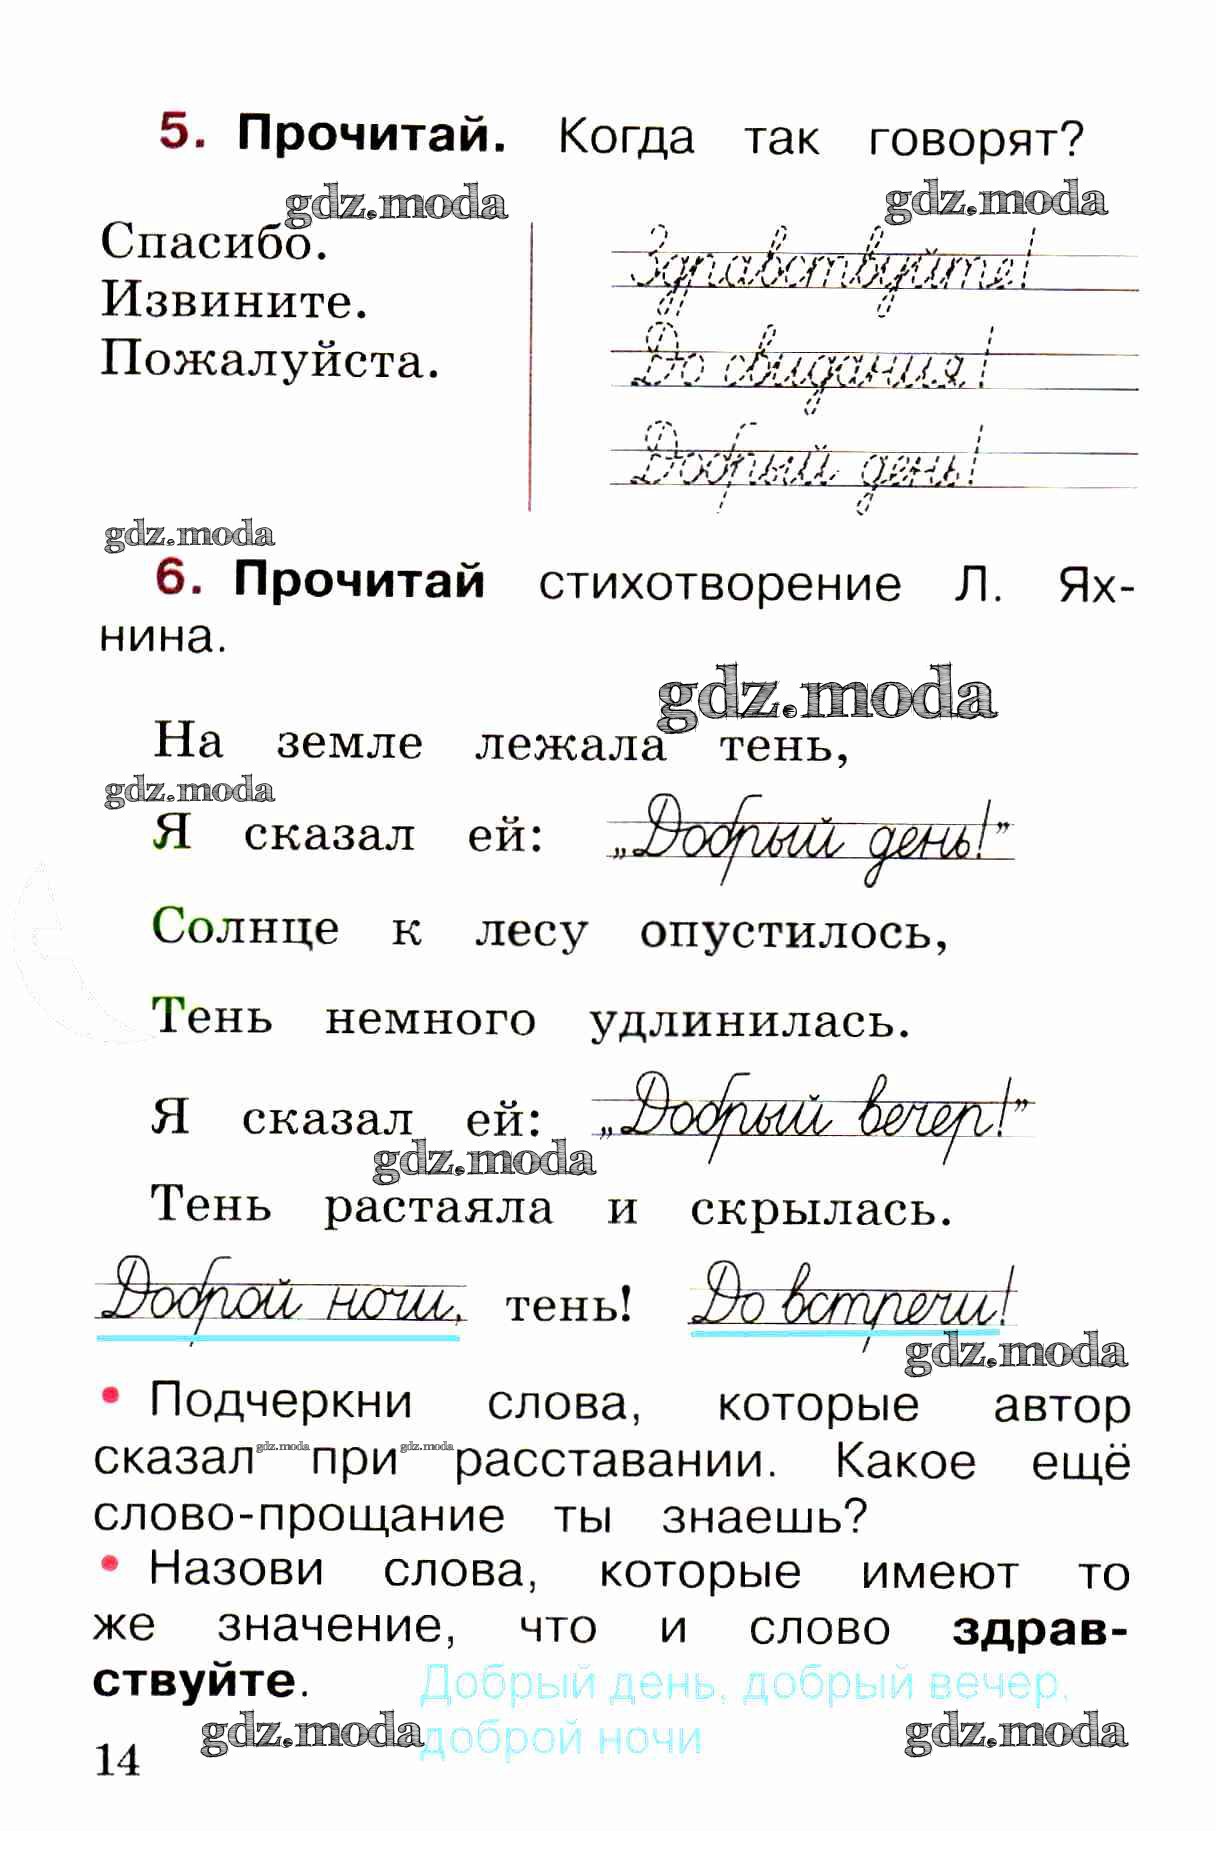 5. Прочитай. Когда так говорят?
gdz.moda gdz.moda
Спасибо.
Извините.
Пожалуйста.
Здравствуйте!
До свидания!
Добрый день!
gdz.moda
6. Прочитай стихотворение Л. Ях-
нина.
gdz.moda
На земле лежала тень,
gdz.moda
Я сказал ей: „Добрый день!”
Солнце к лесу опустилось,
Тень немного удлинилась.
Я сказал ей: „Добрый вечер!”
gdz.moda
Тень растаяла и скрылась.
Доброй ночи, тень! До встречи!
gdz.moda
• Подчеркни слова, которые автор
сказал gdz.moda при gdz.moda расставании. Какое ещё
слово-прощание ты знаешь?
• Назови слова, которые имеют то
же значение, что и слово здрав-
ствуйте. Добрый день, добрый вечер,
доброй ночи
gdz.moda gdz.moda
14